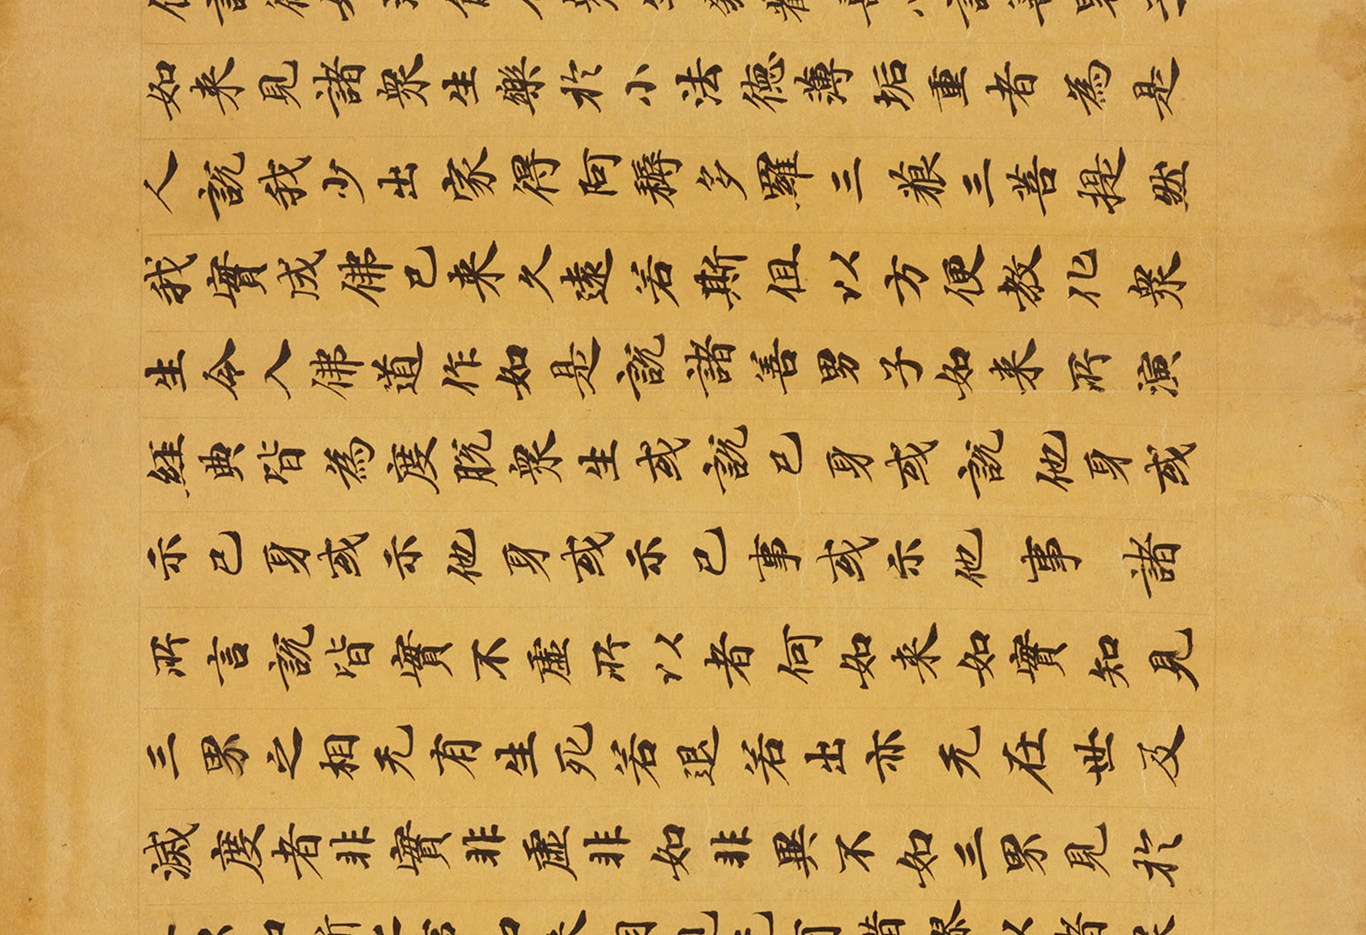 如来見諸衆生樂於小法德薄垢重者為是
人説我少出家得阿耨多羅三藐三菩提然
我實成佛已来久遠若斯但以方便教化衆
生令入佛道作如是説諸善男子如来所演
經典皆為度脱衆生或説己身或説他身或
示己身或示他身或示己事或示他事諸
所言説皆實不虛所以者何如来如實知見
三界之相无有生死若退若出亦无在世及
滅度者非實非虛非如非異不如三界見於